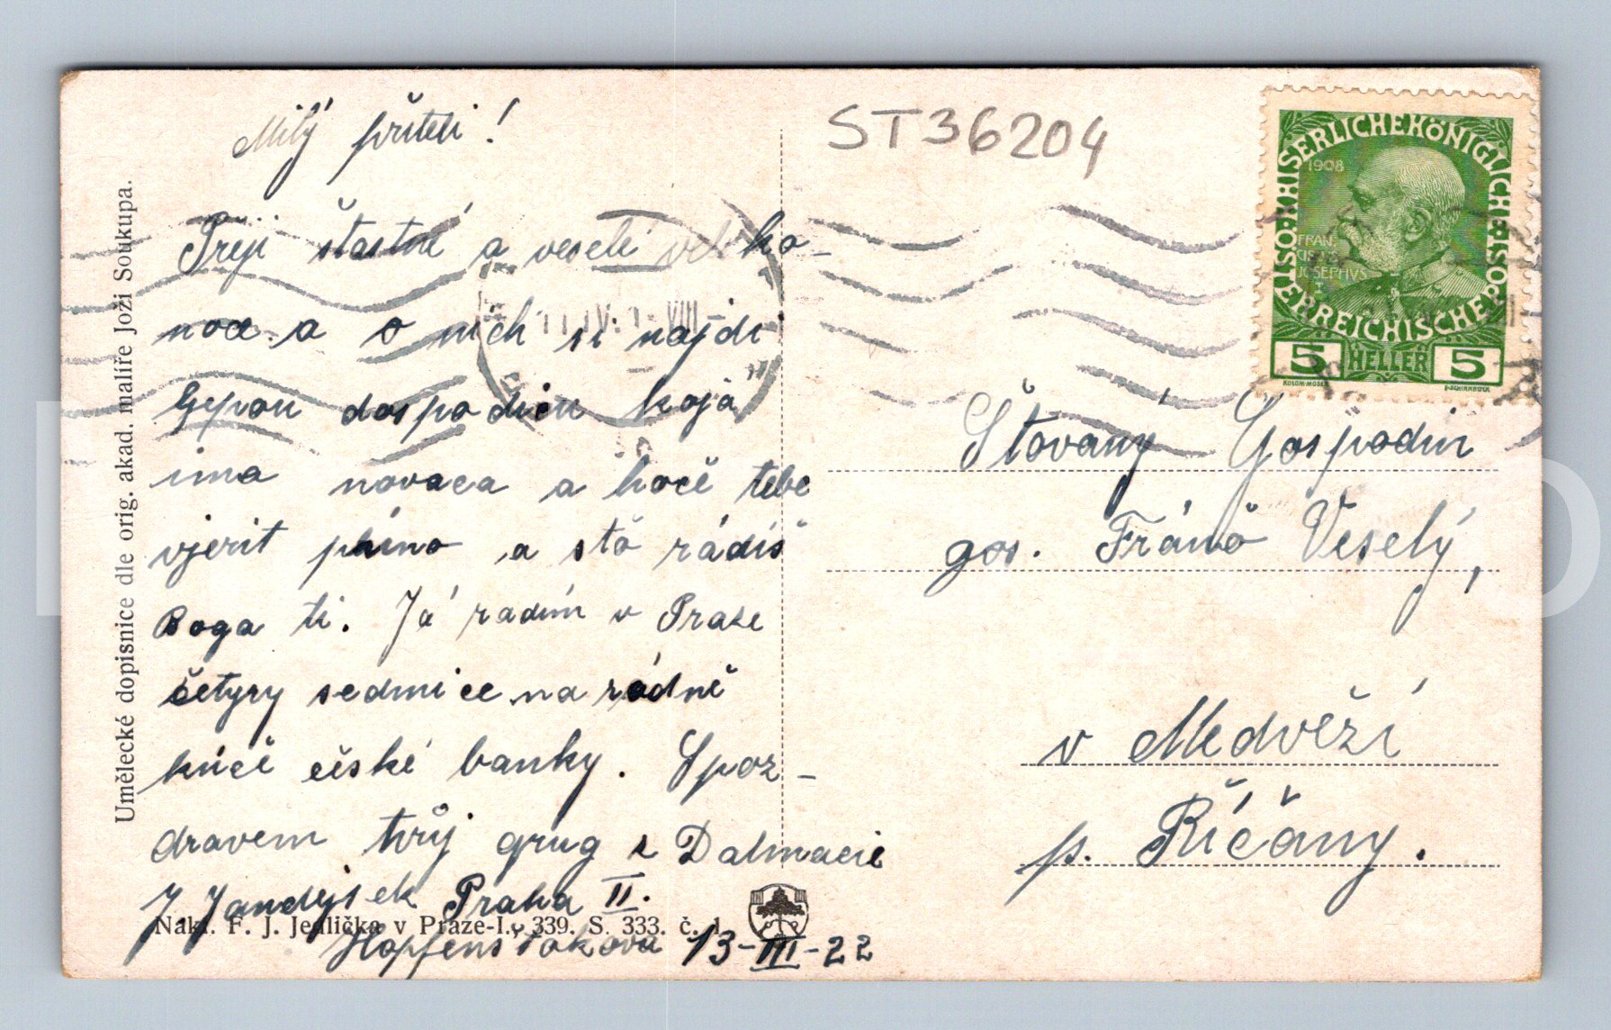 Milý příteli!
Přeji šťastné a veselé veliko-
noce a o nich si najdi
lijepou dospodicu koja
ima novaca a hoče tebe
vjerit páno a sto rádiš
Boga ti. Já radim v Praze
četyry sedmice na rádně
kúcě češké banky. Spoz-
dravem tvůj grug z Dalmacie
J. Jandejsek Praha II.
Hopfenštokova 13-III-22
Umělecké dopisnice dle orig. akad. malíře Joži Soukupa.
Nákl. F. J. Jedlička v Praze-I., 339. S. 333. č. 1.
ST36204
KAISERLICHEKÖNIGLICHE
ÖSTERREICHISCHE POST
1908
FRAN
CISCVS
JOSEPHVS
I
5 HELLER 5
KOLOM·MOSER
F·SCHIRNBÖCK
Štovaný Gospodin
gos. Fráňo Veselý,
v Medvěží
p. Říčány.